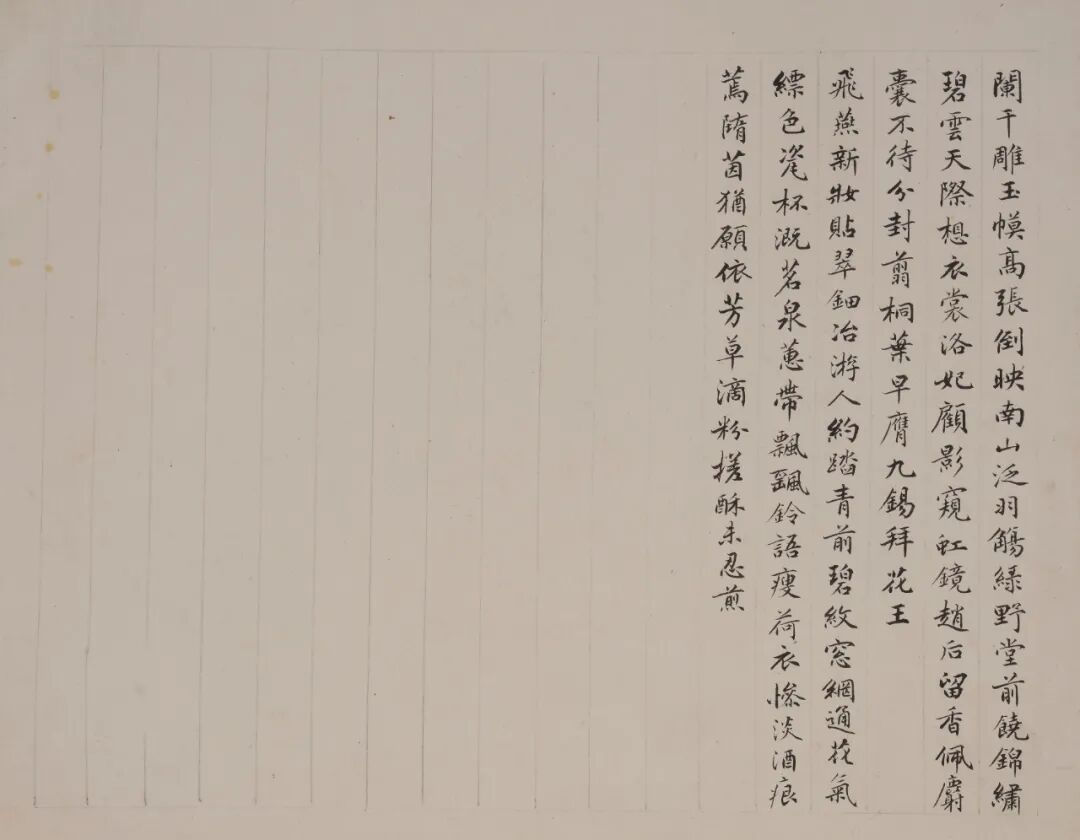 闌干雕玉幙高張倒映南山泛羽觴綠野堂前饒錦繡
碧雲天際想衣裳洛妃顧影窺虹鏡趙后留香佩麝
囊不待分封翦桐葉早膺九錫拜花王
飛燕新妝貼翠鈿冶游人約踏青前碧紋窓網通花氣
縹色瓷杯溉茗泉蕙帶飄颻鈴語瘦荷衣慘淡酒痕
蔫隋茵猶願依芳草滴粉搓酥未忍煎